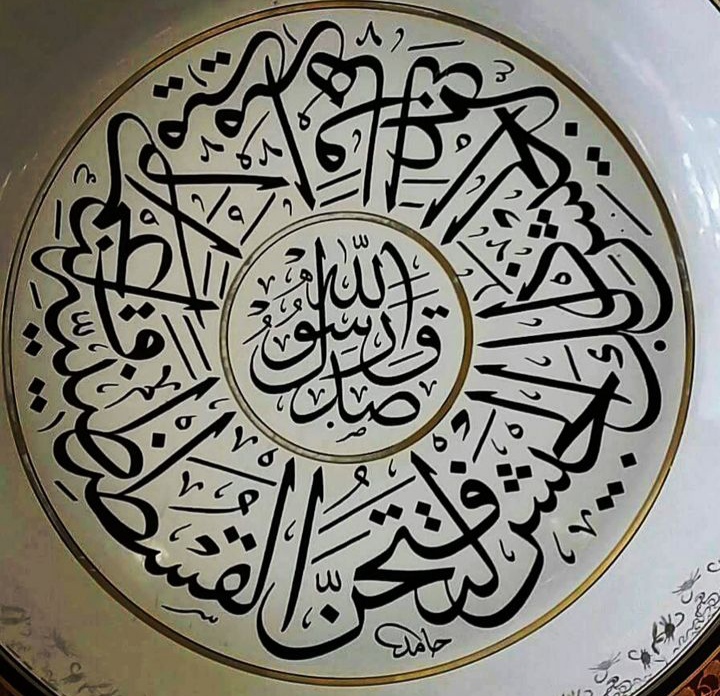 لتفتحن القسطنطينية فلنعم الأمير أميرها ولنعم الجيش ذلك الجيش
صدق رسول الله
حامد